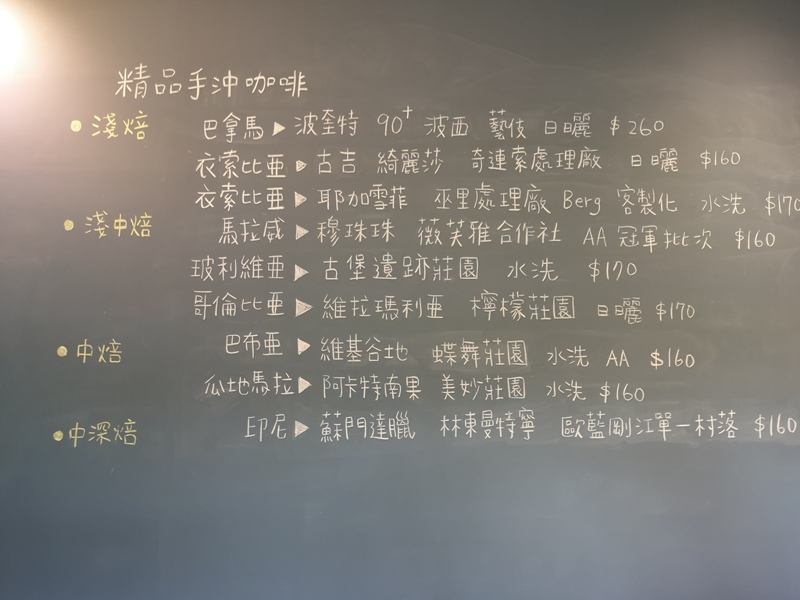 精品手沖咖啡
•淺焙 巴拿馬▶波奎特 90+ 波西 藝伎 日曬 $260
衣索比亞▶古吉 綺麗莎 奇連索處理廠 日曬 $160
衣索比亞▶耶加雪菲 巫里處理廠 Berg 客製化 水洗 $170
•淺中焙 馬拉威▶穆珠珠 薇芙雅合作社 AA 冠軍批次 $160
玻利維亞▶古堡遺跡莊園 水洗 $170
哥倫比亞▶維拉瑪利亞 檸檬莊園 日曬 $170
•中焙 巴布亞▶維基谷地 蝶舞莊園 水洗 AA $160
瓜地馬拉▶阿卡特南果 美妙莊園 水洗 $160
•中深焙 印尼▶蘇門達臘 林東曼特寧 歐藍剛江單一村落 $160